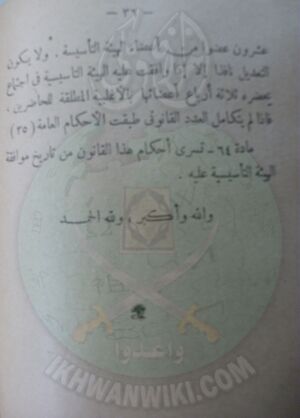 — ٣٦ —
عشرون عضوا من أعضاء الهيئة التأسيسية ، ولا يكون
التعديل نافذا إلا إذا وافقت عليه الهيئة التأسيسية فى اجتماع
يحضره ثلاثة أرباع أعضائها بالأغلبية المطلقة للحاضرين ،
فاذا لم يتكامل العدد القانونى طبقت الأحكام العامة (٣٥)
مادة ٦٤ - تسرى أحكام هذا القانون من تاريخ موافقة
الهيئة التأسيسية عليه .
والله وأكبر ، ولله الحمد
وأعدوا
IKHWANWIKI.COM